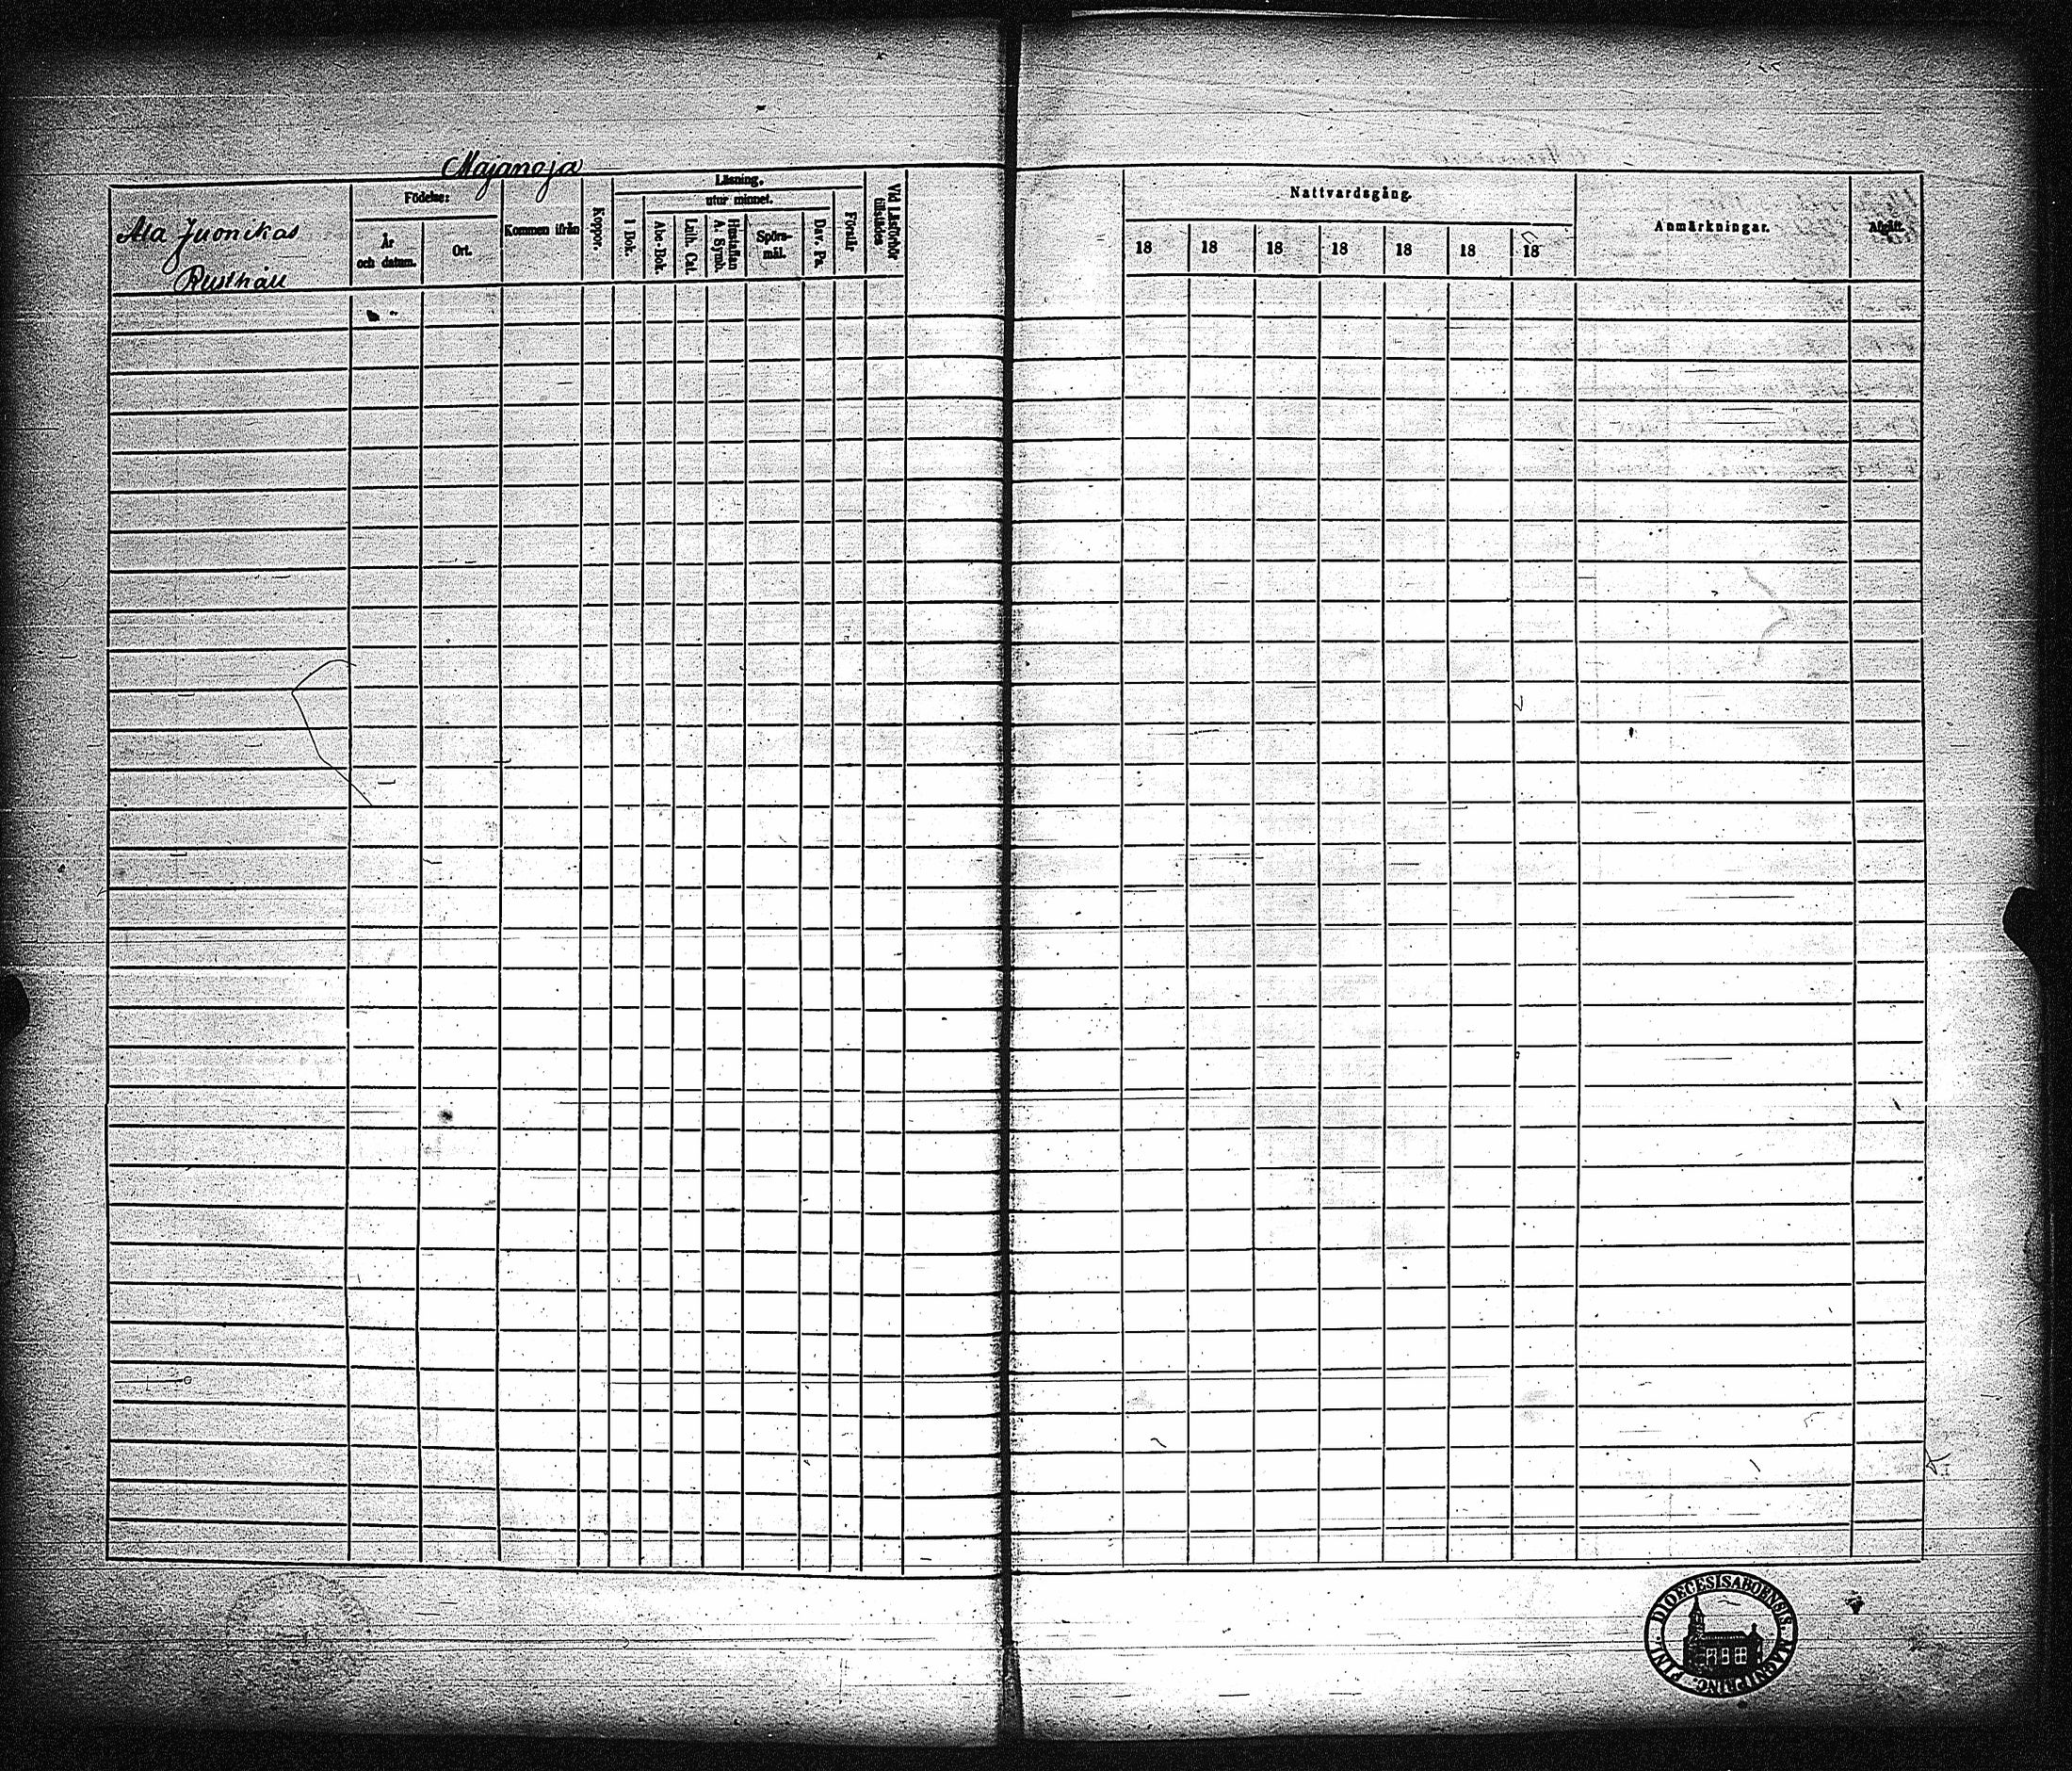 Majanoja
Ala Juonikas
Rusthåll
Födelse:
År
och datum.
Ort.
Kommen ifrån
Koppor.
Läsning.
utur minnet.
I Bok.
Abc-Bok.
Luth. Cat.
Hustaflan
A. Symb.
Spörs-
mål.
Dav. Ps.
Förstår
Vid Läsförhör
tillstädes
Nattvardsgång.
18 18 18 18 18 18 18
Anmärkningar.
Afgått.
DIOECESIS ABOENSIS MAGNI PRINC. FINL.